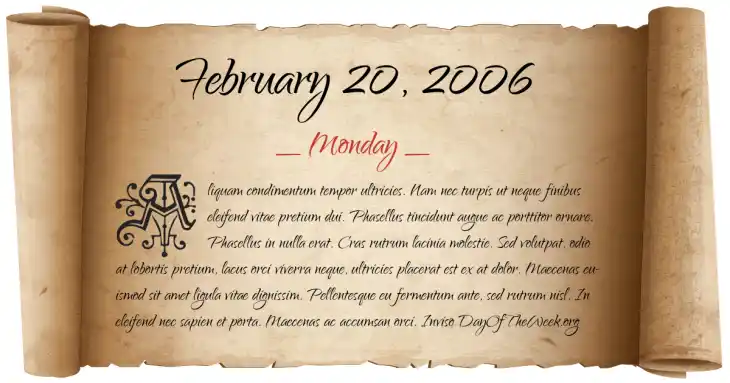 February 20, 2006
_ Monday _
Aliquam condimentum tempor ultricies. Nam nec turpis ut neque finibus
eleifend vitae pretium dui. Phasellus tincidunt augue ac porttitor ornare.
Phasellus in nulla erat. Cras rutrum lacinia molestie. Sed volutpat, odio
at lobortis pretium, lacus orci viverra neque, ultricies placerat est ex at dolor. Maecenas eu-
ismod sit amet ligula vitae dignissim. Pellentesque eu fermentum ante, sed rutrum nisl. In
eleifend nec sapien et porta. Maecenas ac accumsan orci. Inviso DayOfTheWeek.org